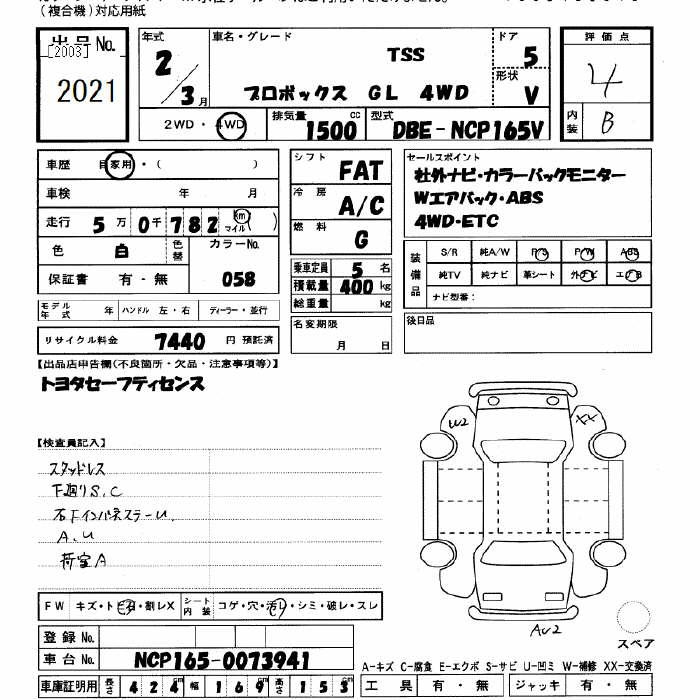 (複合機)対応用紙
出品No.
[2003]
2021
年式
2/3月
車名・グレード
TSS
プロボックス GL 4WD
ドア
5
形状
V
評価点
4
内装
B
2WD・4WD
排気量
1500 cc
型式
DBE-NCP165V
車歴 自家用・( )
車検 年 月
走行 5万0千782 km マイル( )
色 白 色替
カラーNo.
058
保証書 有・無
シフト
FAT
冷房
A/C
燃料
G
乗車定員 5 名
積載量 400 kg
総重量 kg
セールスポイント
社外ナビ・カラーバックモニター
Wエアバック・ABS
4WD・ETC
装備品
S/R 純A/W P/S P/W ABS
純TV 純ナビ 革シート 外ナビ エアB
ナビ型番:
モデル年式 年 ハンドル 左・右 ディーラー・並行
名変期限
月 日
後日品
リサイクル料金 7440 円 預託済
【出品店申告欄(不良箇所・欠品・注意事項等)】
トヨタセーフティセンス
【検査員記入】
スタッドレス
下廻りS.C
A.U
荷室A
W2
XX
AU2
スペア
FW キズ・トビ石・割レX
シート内装 コゲ・穴・汚レ・シミ・破レ・スレ
登録No.
車台No. NCP165-0073941
車庫証明用 長さ 424cm 幅 169cm 高さ 153cm
A-キズ C-腐食 E-エクボ S-サビ U-凹ミ W-補修 XX-交換済
工具 有・無 ジャッキ 有・無